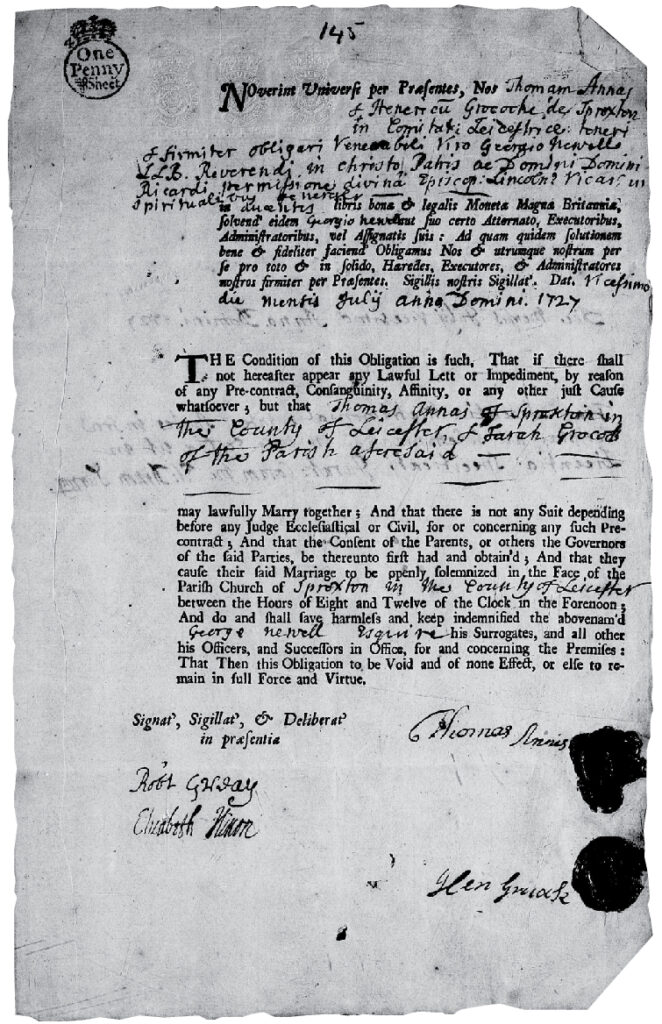 145
One
Penny
Sheet
NOverint Universi per Præsentes, Nos Thomam Annas
& Henericũ Grococke de Sproxton
in Comitat: Leicestrice teneri
& firmiter obligari Venerabili Viro Georgio Newell
LLB. Reverendi in Christo Patris ac Domini Domini
Ricardi permissione divinâ Episcop: Lincoln? Vicar in
Spiritualibus
in libris bonæ & legalis Monetæ Magnæ Britanniæ,
solvend' eidem Georgio Newell aut suo certo Atternato, Executoribus,
Administratoribus, vel Assignatis suis: Ad quam quidem solutionem
bene & fideliter faciend Obligamus Nos & utrumque nostrum per
se pro toto & in solido, Hæredes, Executores, & Administratores
nostros firmiter per Præsentes. Sigillis nostris Sigillat'. Dat. Vicessimo
die mensis Julij anno Domini. 1727
THE Condition of this Obligation is such, That if there shall
not hereafter appear any Lawful Lett or Impediment, by reason
of any Pre-contract, Consanguinity, Affinity, or any other just Cause
whatsoever; but that Thomas Annas of Sproxton in
the County of Leicester, & Sarah Grocock
of the Parish aforesaid
may lawfully Marry together; And that there is not any Suit depending
before any Judge Ecclesiastical or Civil, for or concerning any such Pre-
contract; And that the Consent of the Parents, or others the Governors
of the said Parties, be thereunto first had and obtain'd; And that they
cause their said Marriage to be openly solemnized in the Face of the
Parish Church of Sproxton in the County of Leicester
between the Hours of Eight and Twelve of the Clock in the Forenoon;
And do and shall save harmless and keep indemnified the abovenam'd
George Newell Esquire his Surrogates, and all other
his Officers, and Successors in Office, for and concerning the Premises:
That Then this Obligation to be Void and of none Effect, or else to re-
main in full Force and Virtue.
Signat', Sigillat', & Deliberat'
in præsentia
Thomas Annis
Robt
Elizabeth
Hen Grocock